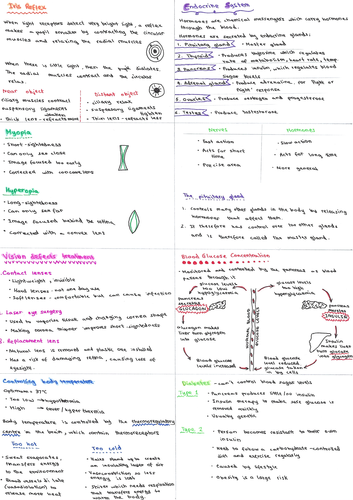 Iris Reflex
When light receptors detect very bright light, a reflex
makes a pupil smaller by contracting the circular
muscles and relaxing the radial muscles
When there is little light then the pupil dilates.
The radial muscles contract and the circular
relax.
Near object
Ciliary muscles contract
Suspensory ligaments
Thick lens - refracts more
Distant object
Ciliary relax
Suspensory ligaments tighten
Thin lens - refracts less
Endocrine System
Hormones are chemical messengers which carry hormones
through the blood.
Hormones are secreted by endocrine glands:
1. Pituitary gland - Master gland
2. Thyroid - Produces thyroxine which regulates
rate of metabolism, heart rate, temp
3. Pancreas - Produces insulin which regulates blood
sugar levels
4. Adrenal glands - Produce adrenaline, for 'fight or
flight' response
5. Ovaries - Produce oestrogen and progesterone
6. Testes - Produce testosterone
Myopia
- Short-sightedness
- Can only see close
- Image focused too early
- Corrected with concave lens
Hyperopia
- Long-sightedness
- Can only see far
- Image focused behind the retina
- Corrected with a convex lens
Nerves
- Fast action
- Acts for short time
- Precise area
Hormones
- Slow action
- Acts for long time
- More general
The pituitary gland
1. Controls many other glands in the body by releasing
hormones that affect them.
2. It therefore had control over the other glands
and is therefore called the master gland.
Vision defects treatments
1. Contact lenses
- Lightweight, invisible
- Hard lenses - not one day use
- Soft lenses - comfortable but can cause infection
2. Laser eye surgery
- Used to vaporise tissue and changing cornea shape
- Making cornea thinner improves short-sightedness
3. Replacement lens
- Natural lens is removed and plastic one installed
- Has a risk of damaging retina, causing loss of
eyesight.
Blood Glucose Concentration
- Monitored and controlled by the pancreas as blood
passes through it
glucose levels
hypoglycaemia
GLUCAGON
Glucagon makes
liver turn glycogen
into glucose
Blood glucose
levels increased
glucose levels
hyperglycaemia
INSULIN
Insulin makes
liver turn
glucose into
glycogen
Blood glucose
levels reduced
glucose taken
in by cells
Controlling body temperature
Optimum = 37°C
- Too low → hypothermia
- High → fever / hyperthermia
Body temperature is controlled by the thermoregulatory
centre in the brain, which contain thermoreceptors
Too hot
- Sweat evaporates,
transfers energy
to the environment
- Blood vessels dilate
(vasodilation) to
release more heat
Too cold
- Hairs stand up to create
an insulating layer of air
- Vasoconstriction so less
energy is lost
- Shiver which needs respiration
that transfers energy to
warm the body.
Diabetes - can't control blood sugar levels
Type 1
- Pancreas produces little/no insulin
- Insulin therapy to make sure glucose is
removed quickly
- Slowly growth
Type 2
- Person becomes resistant to their own
insulin
- Need to follow a carbohydrate-controlled
diet and exercise regularly
- Caused by lifestyle
- Obesity is a large risk